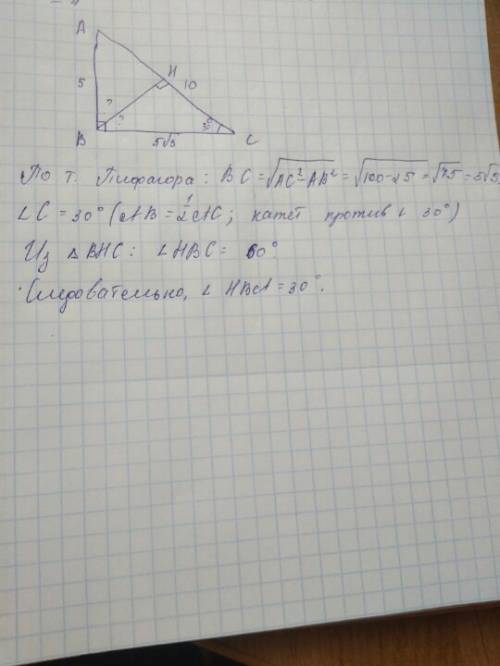 A
H
5
10
?
?
B
5√3
C
По т. Пифагора: BC = √AC²-AB² = √100-25 = √75 = 5√3
∠C = 30° (AB = ½AC; катет против ∠ 30°)
Из △BHC: ∠HBC = 60°
Следовательно, ∠ HBA = 30°.